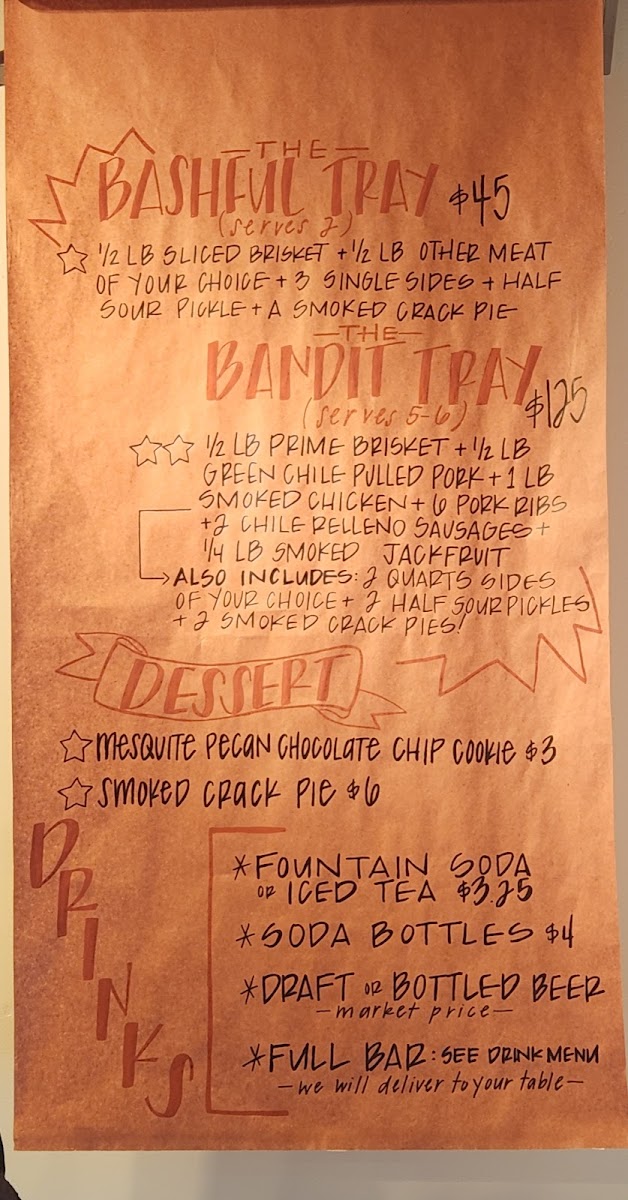 —THE—
BASHFUL TRAY $45
(serves 2)
☆ 1/2 LB SLICED BRISKET + 1/2 LB OTHER MEAT
OF YOUR CHOICE + 3 SINGLE SIDES + HALF
SOUR PICKLE + A SMOKED CRACK PIE
—THE—
BANDIT TRAY $125
(serves 5-6)
☆☆ 1/2 LB PRIME BRISKET + 1/2 LB
GREEN CHILE PULLED PORK + 1 LB
SMOKED CHICKEN + 6 PORK RIBS
+ 2 CHILE RELLENO SAUSAGES +
1/4 LB SMOKED JACKFRUIT
→ ALSO INCLUDES: 2 QUARTS SIDES
OF YOUR CHOICE + 2 HALF SOUR PICKLES
+ 2 SMOKED CRACK PIES!
DESSERT
☆ MESQUITE PECAN CHOCOLATE CHIP COOKIE $3
☆ SMOKED CRACK PIE $6
DRINKS
*FOUNTAIN SODA
OR ICED TEA $3.25
*SODA BOTTLES $4
*DRAFT OR BOTTLED BEER
—market price—
*FULL BAR: SEE DRINK MENU
—we will deliver to your table—